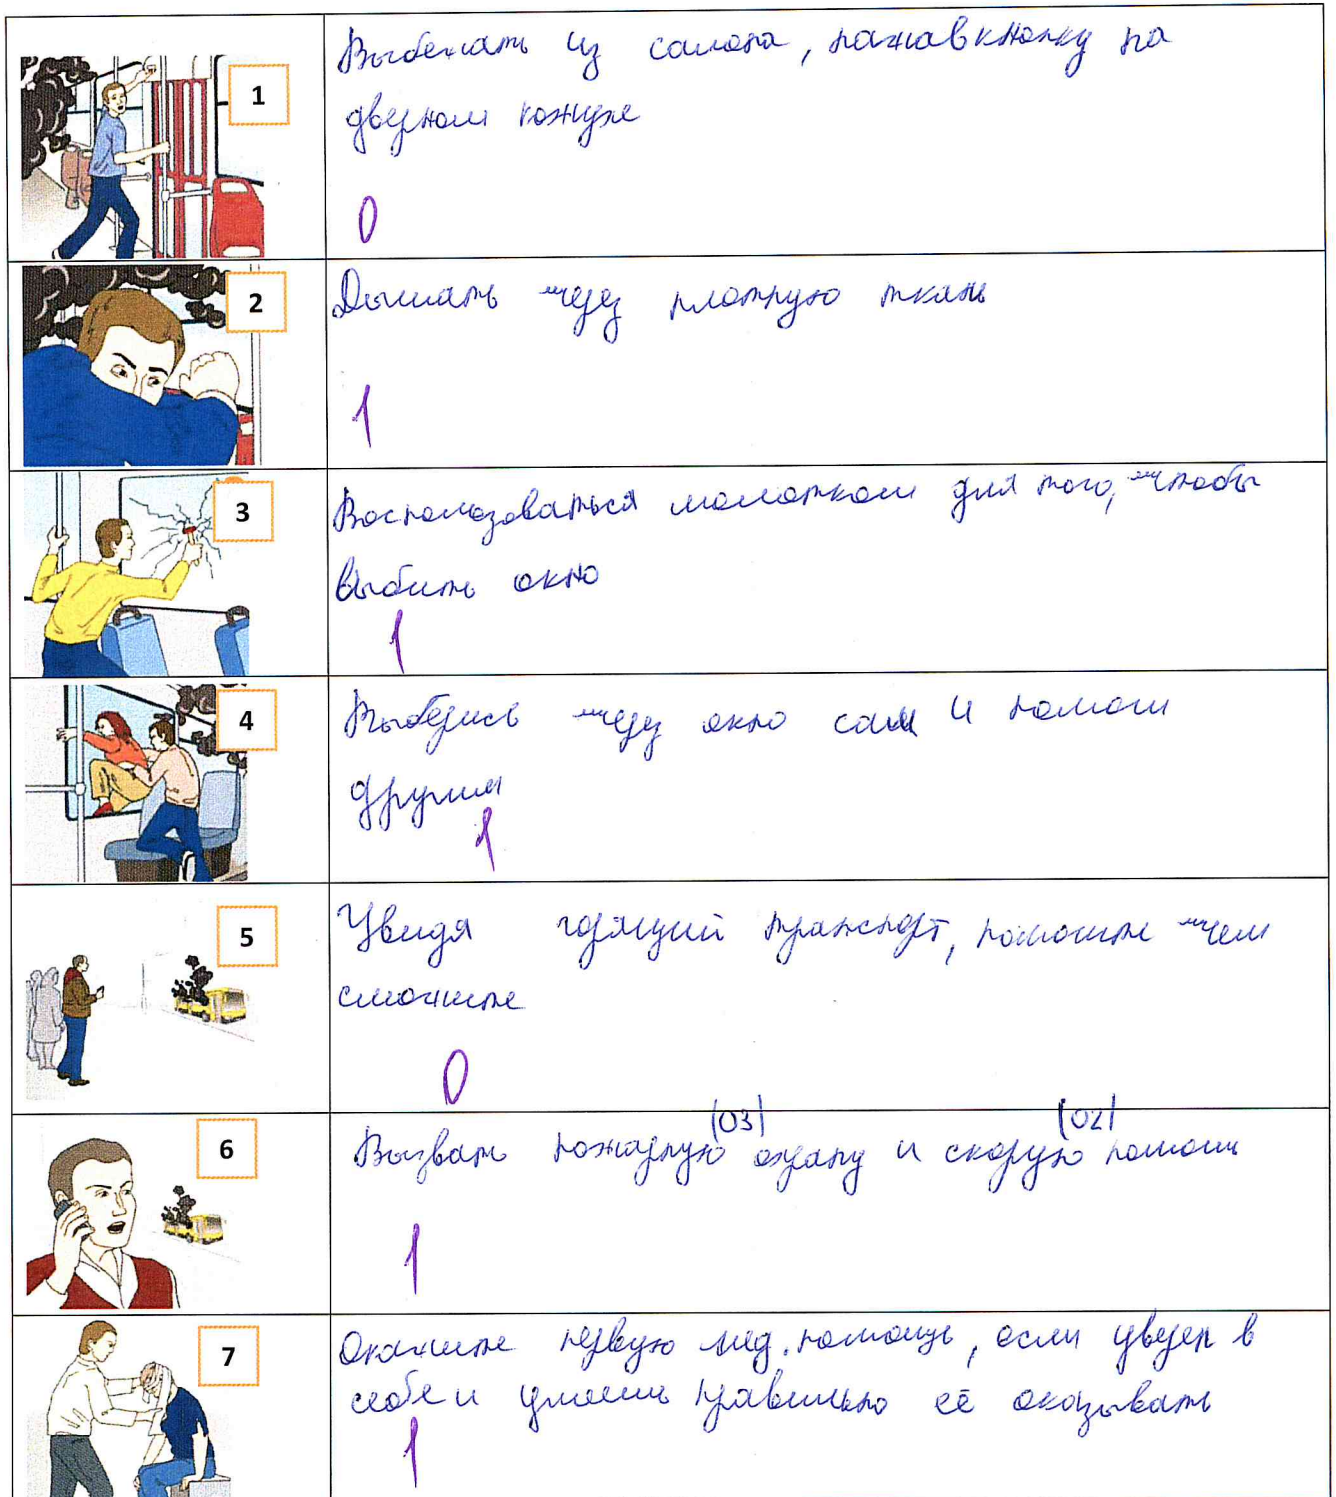 1
Выбежать из салона, нажав кнопку на
дверном кожухе
0
2
Дышать через плотную ткань
1
3
Воспользоваться молотком для того, чтобы
выбить окно
1
4
Выберись через окно сам и помоги
другим
1
5
Увидя горящий транспорт, помогите чем
сможите
0
6
(03) (02)
Вызвать пожарную охрану и скорую помощь
1
7
Окажите первую мед. помощь, если уверен в
себе и умеешь правильно её оказывать
1